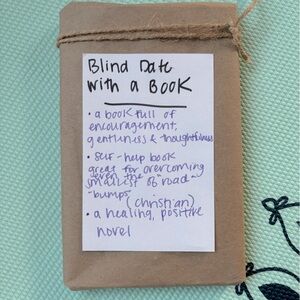 Blind Date
with a Book
• a book full of
encouragement,
gentleness & thoughtfulness
• self-help book
great for overcoming
even the
smallest of "road
-bumps" (christian)
• a healing, positive
novel